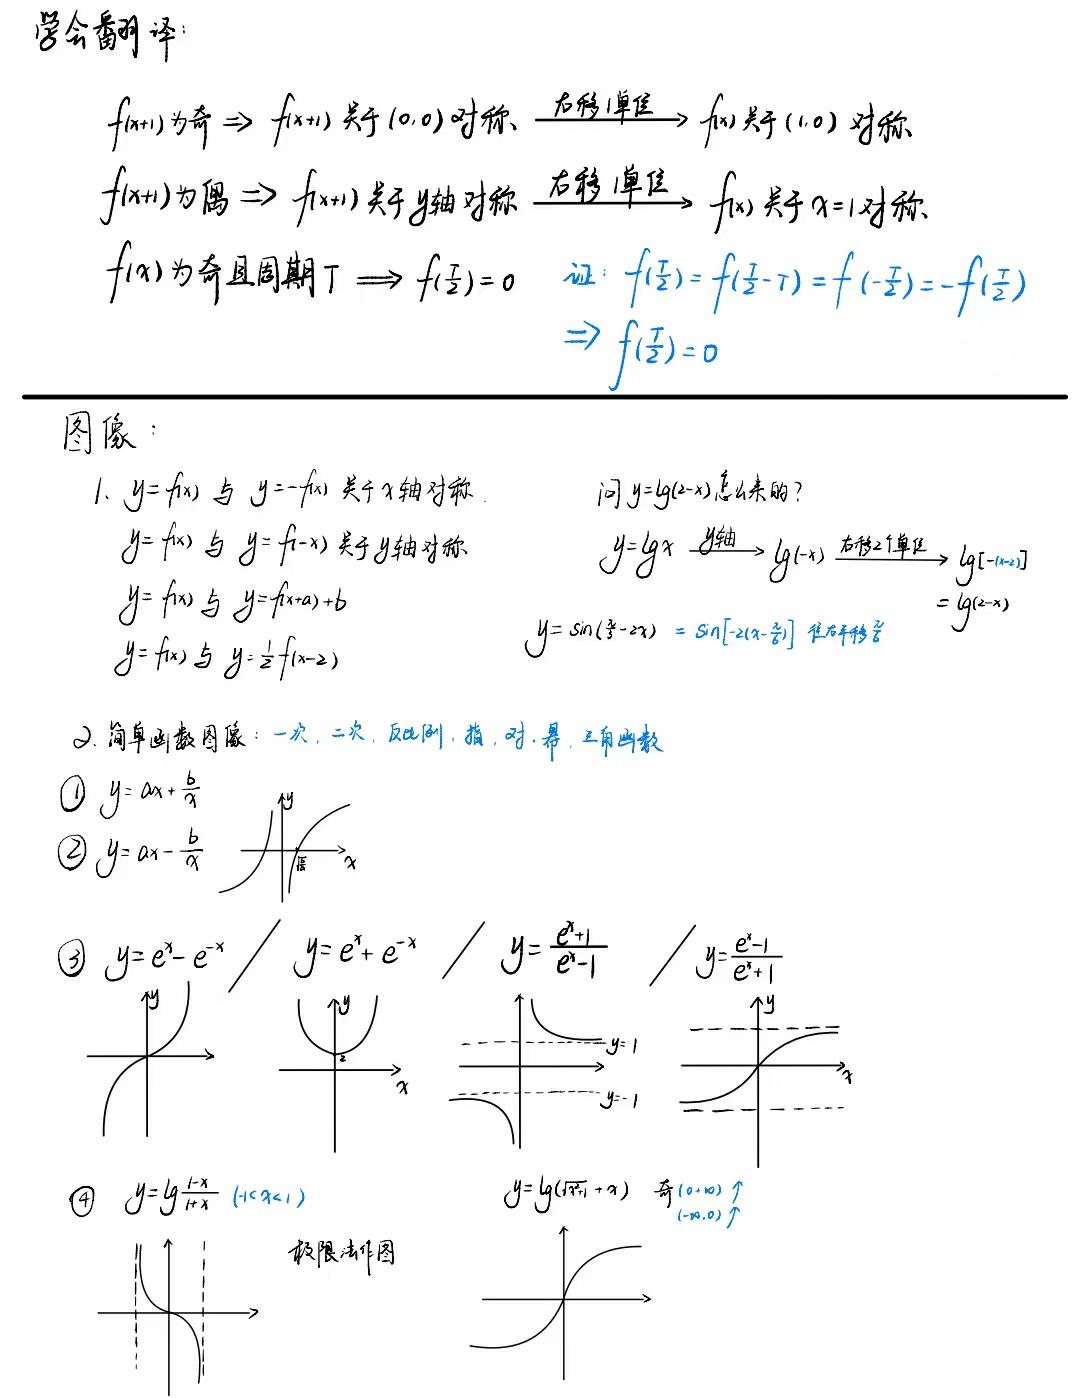 学会翻译:
f(x+1)为奇 ⇒ f(x+1)关于(0,0)对称、 右移1单位 → f(x)关于(1,0)对称、
f(x+1)为偶 ⇒ f(x+1)关于y轴对称 右移1单位 → f(x)关于x=1对称、
f(x)为奇且周期T ⇒ f(T/2)=0 证: f(T/2)=f(T/2-T)=f(-T/2)=-f(T/2)
⇒ f(T/2)=0
图像:
1. y=f(x) 与 y=-f(x) 关于x轴对称.
y=f(x) 与 y=f(-x) 关于y轴对称
y=f(x) 与 y=f(x+a)+b
y=f(x) 与 y=1/2 f(x-2)
问 y=lg(2-x)怎么来的?
y=lgx y轴 → lg(-x) 右移2个单位 → lg[-(x-2)]
=lg(2-x)
y=sin(π/3-2x) = sin[-2(x-π/6)] 往右平移π/6
2. 简单函数图像: 一次, 二次, 反比例, 指, 对, 幂, 三角函数
① y=ax+b/x
② y=ax-b/x
y
x
③ y=e^x-e^-x / y=e^x+e^-x / y=(e^x+1)/(e^x-1) / y=(e^x-1)/(e^x+1)
y
y
2
x
y=1
y=-1
y
x
④ y=lg (1-x)/(1+x) (-1<x<1)
y=lg(√(x²+1)+x) 奇(0,+∞)↑
(-∞,0)↑
极限法作图